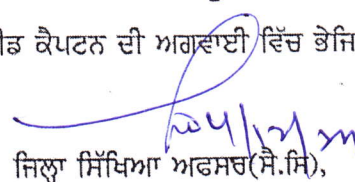 ਕੈਪਟਨ ਦੀ ਅਗਵਾਈ ਵਿੱਚ ਭੇਜਿ
ਜਿਲ੍ਹਾ ਸਿੱਖਿਆ ਅਫਸਰ(ਸੈ.ਸਿ),